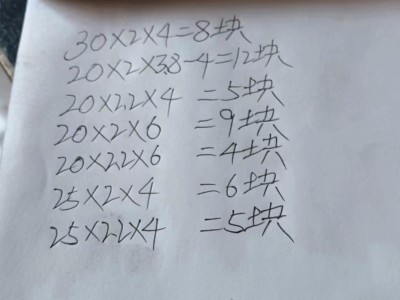 30×2×4=8块
20×2×3.8-4=12块
20×2.2×4 =5块
20×2×6 =9块
20×2.2×6 =4块
25×2×4 =6块
25×2.2×4 =5块